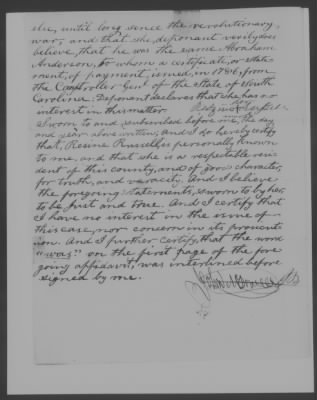 else, until long sence the revolutionary
war, and that she, deponant verily does
believe, that he was the same Abraham
Anderson, to whom a certificate, or state-
ment, of payment, issued, in 1786, from
the Comptroller Genl. of the State of South
Carolina. Deponant declares that she has no
interest in this matter.
Sworn to and subscribed before me, the day
and year above written, and I do hereby certify
that, Resine Russell is personally known
to me, and that she is a respectable resi-
dent of this county, and of good character,
for truth, and veracity, and I believe
the foregoing statements, sworn to by her,
to be just and true. And I certify that
I have no interest in the issue of
this case, nor concern in its prosecut-
ion. And I further certify, that the word
"was" on the first page of the fore
going affidavit, was interlined before
signed by me.